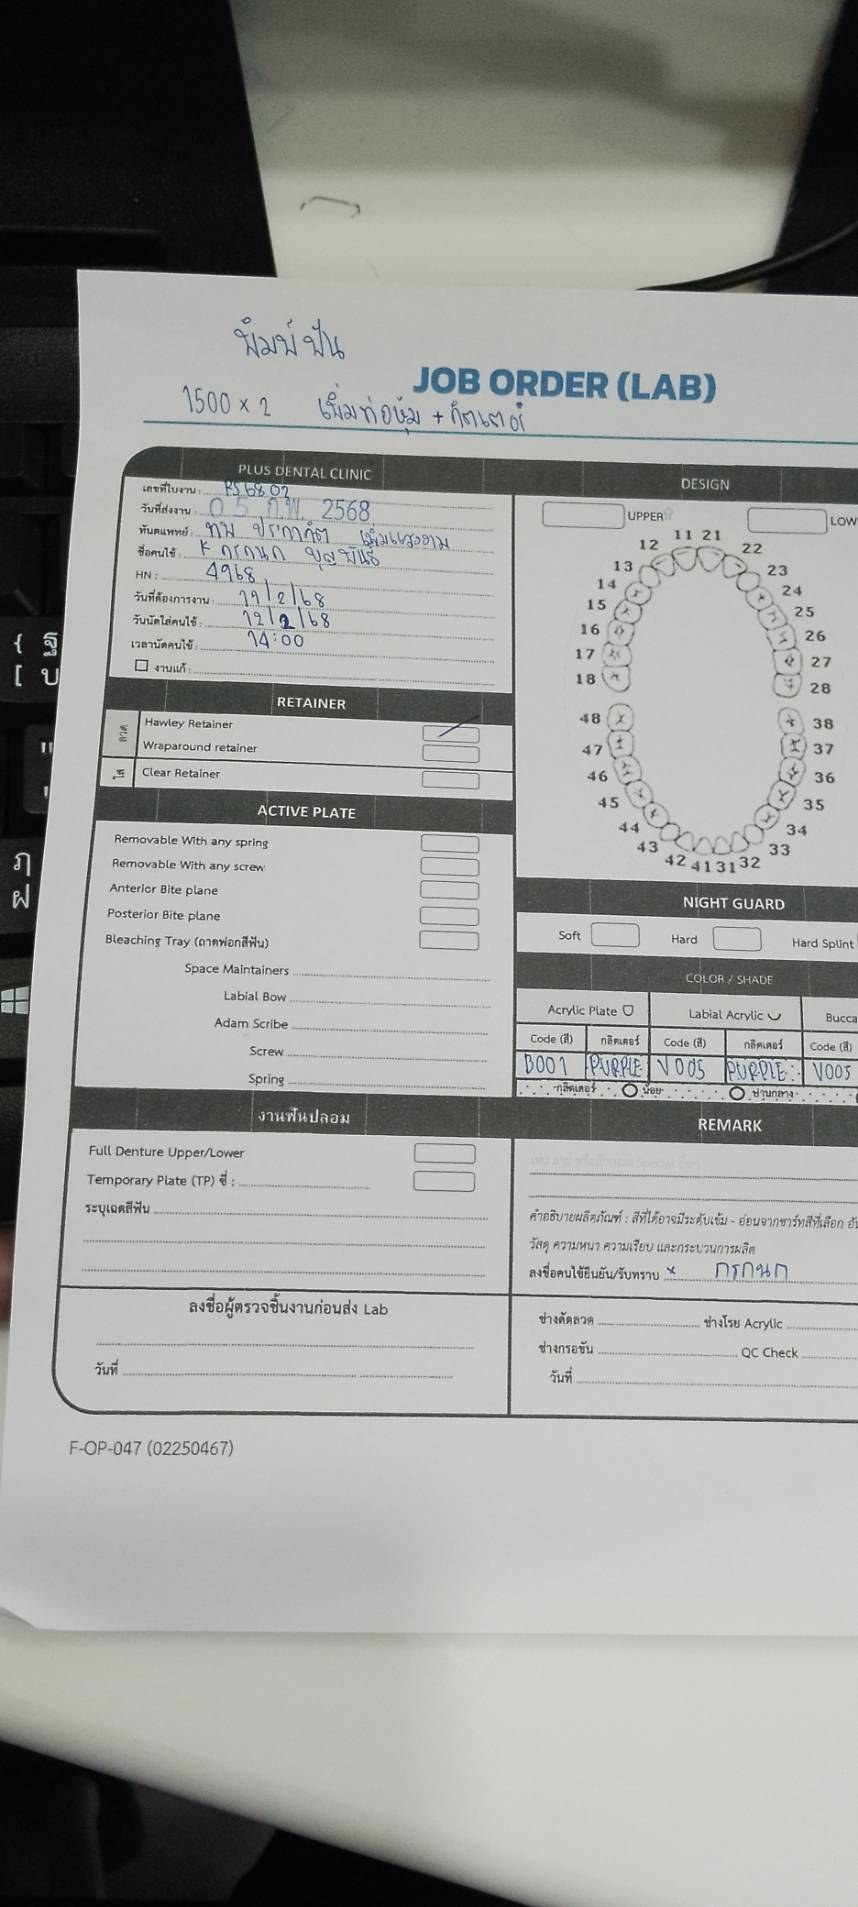 พิมพ์ฟัน
JOB ORDER (LAB)
1500 × 2 เพิ่มท่อหุ้ม + กิตเตอร์
PLUS DENTAL CLINIC
เลขที่ใบงาน : PS6802
วันที่ส่งงาน : 05 กพ. 2568
ทันตแพทย์ : ทพ
ชื่อคนไข้ : K กรกนก
HN : 4968
วันที่ต้องการงาน : 11/2/68
วันนัดใส่คนไข้ : 12/2/68
เวลานัดคนไข้ : 14:00
งานแก้ :
RETAINER
ลวด
Hawley Retainer
Wraparound retainer
ใส
Clear Retainer
ACTIVE PLATE
Removable With any spring
Removable With any screw
Anterior Bite plane
Posterior Bite plane
Bleaching Tray (ถาดฟอกสีฟัน)
Space Maintainers
Labial Bow
Adam Scribe
Screw
Spring
งานฟันปลอม
Full Denture Upper/Lower
Temporary Plate (TP) ซี่ :
ระบุเฉดสีฟัน
ลงชื่อผู้ตรวจชิ้นงานก่อนส่ง Lab
วันที่
DESIGN
UPPER LOW
12 11 21 22
13 23
14 24
15 25
16 26
17 27
18 28
48 38
47 37
46 36
45 35
44 34
43 33
42 41 31 32
NIGHT GUARD
Soft Hard Hard Splint
COLOR / SHADE
Acrylic Plate Labial Acrylic Bucca
Code (สี) กลิตเตอร์ Code (สี) กลิตเตอร์ Code (สี)
B001 PURPLE V005 PURPLE V005
กลิตเตอร์ น้อย ปานกลาง
REMARK
คำอธิบายผลิตภัณฑ์ : สีที่ได้อาจมีระดับเข้ม - อ่อนจากชาร์ทสีที่เลือก
วัสดุ ความหนา ความเรียบ และกระบวนการผลิต
ลงชื่อคนไข้ยืนยัน/รับทราบ x กรกนก
ช่างดัดลวด ช่างโรย Acrylic
ช่างกรอขัน QC Check
วันที่
F-OP-047 (02250467)
{ ฐ
[ บ
"
'
ฦ
ฝ